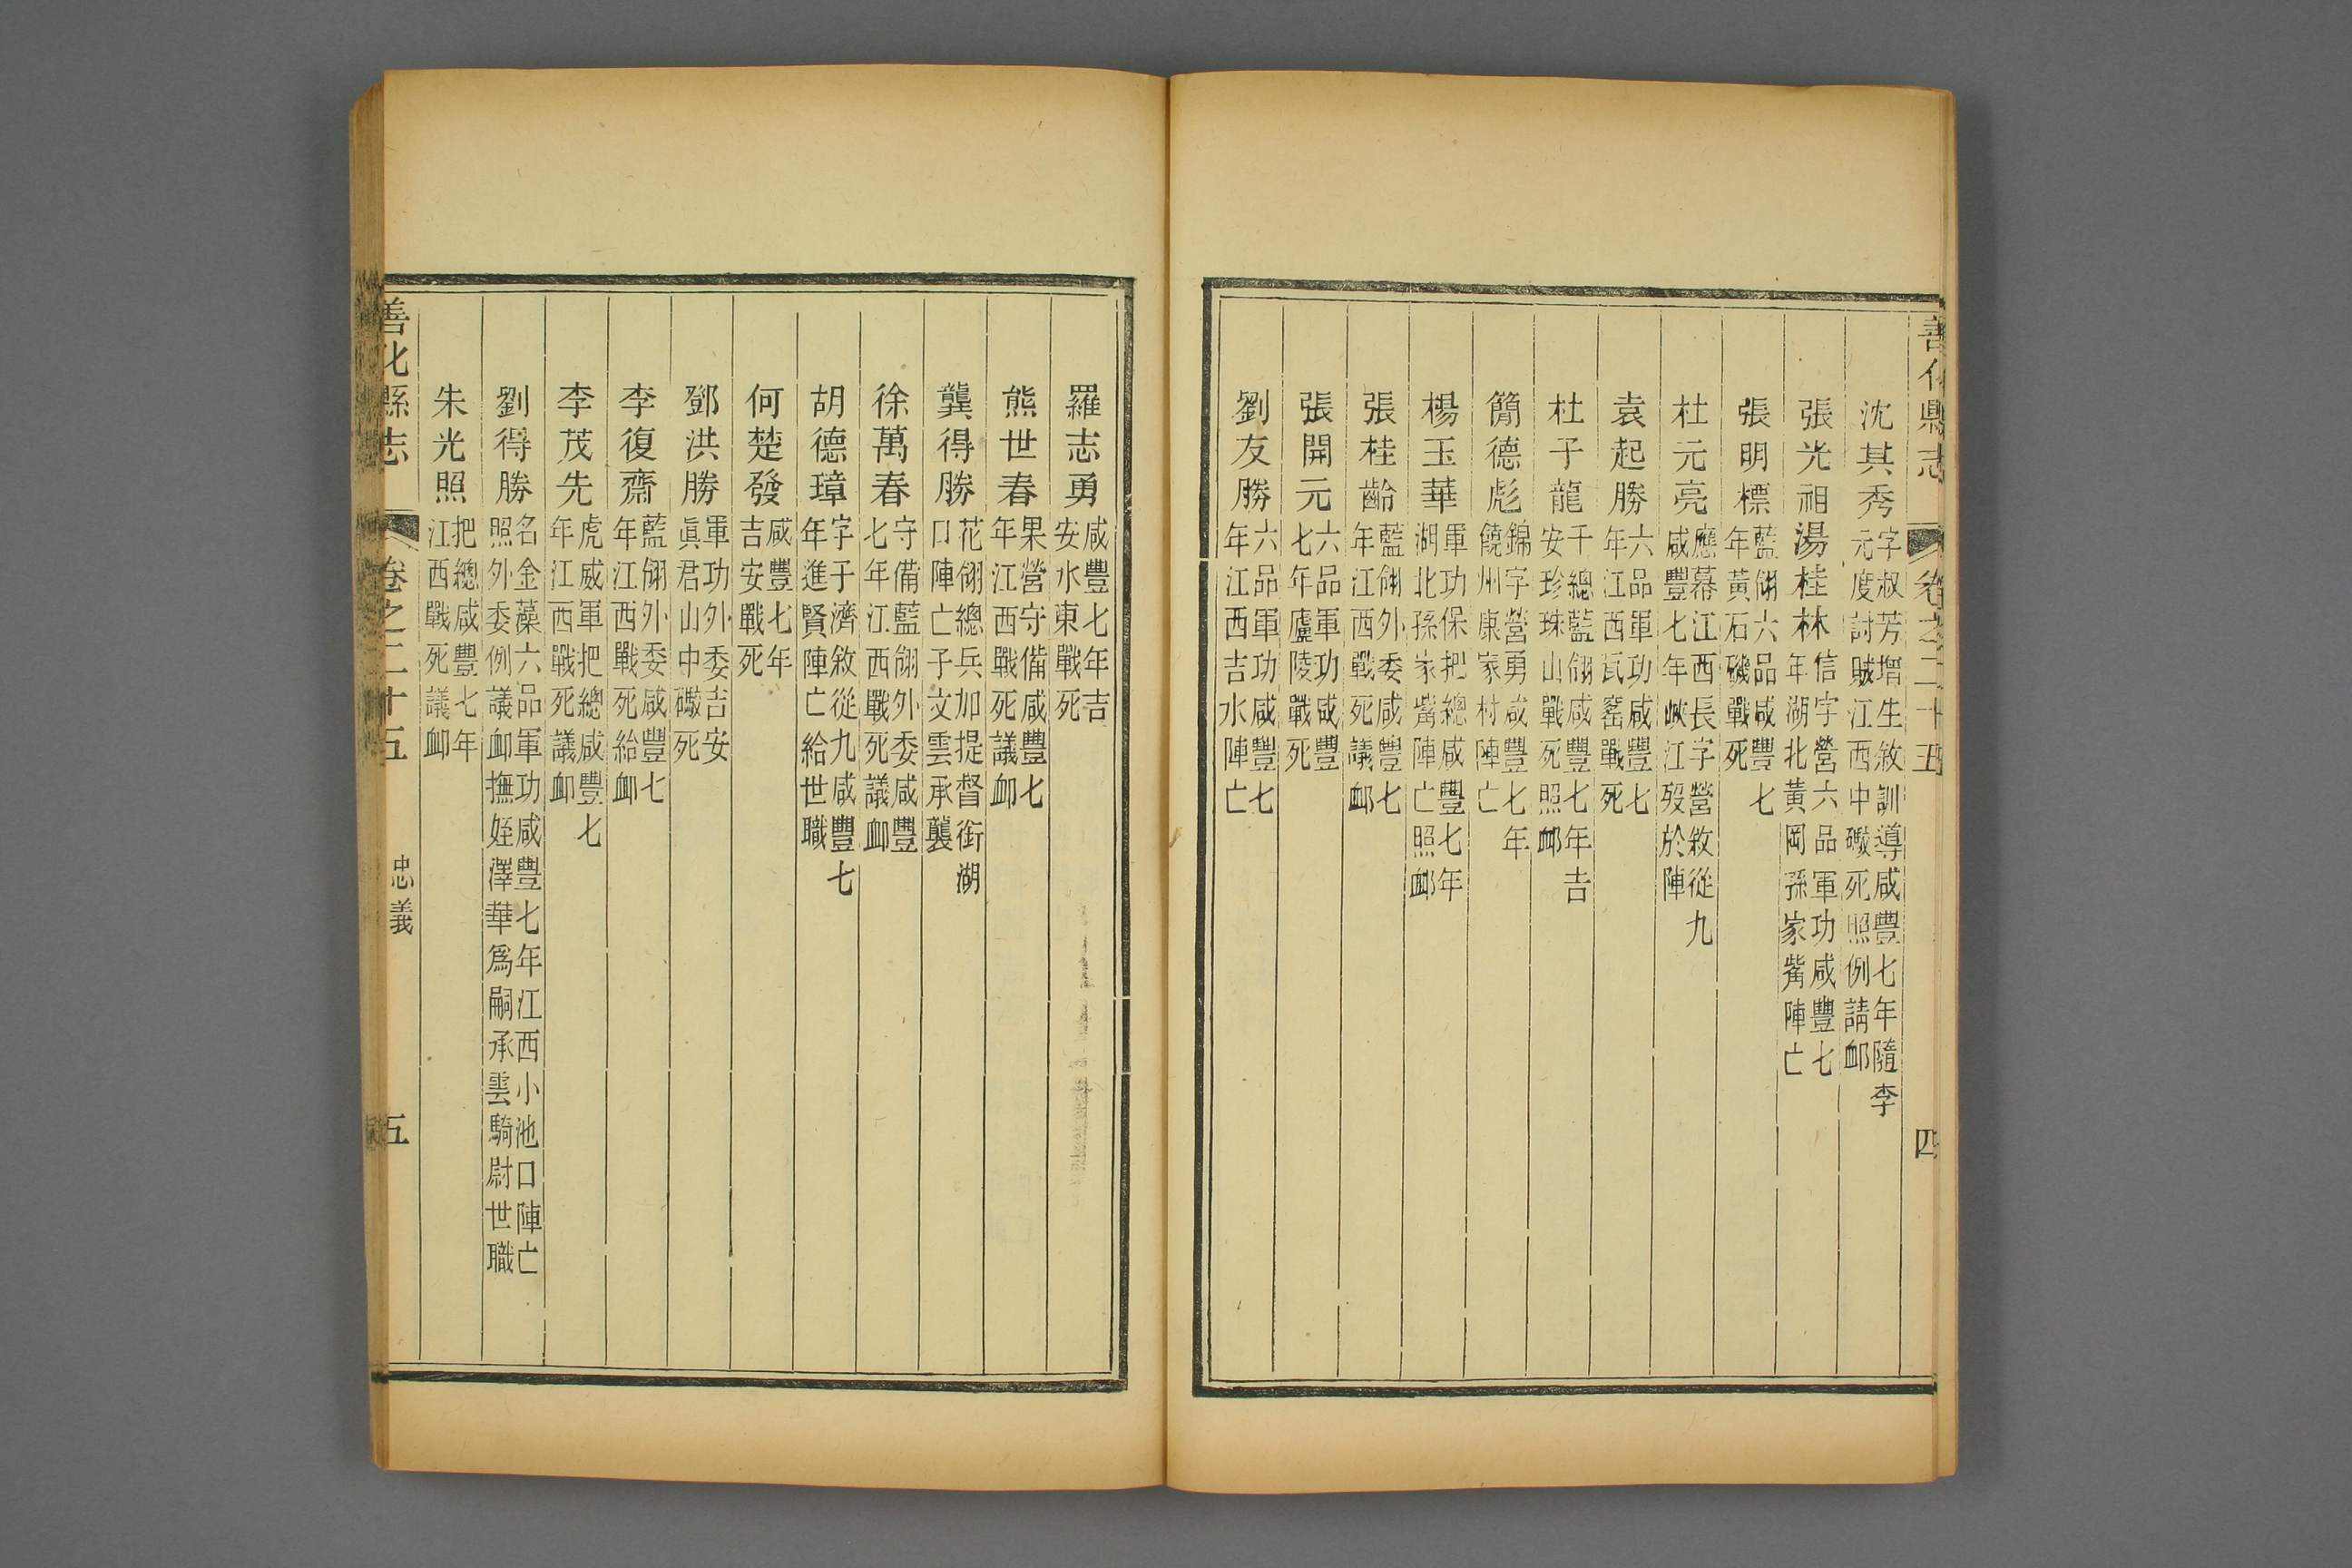 善化縣志 卷之二十五 四
沈其秀 字叔芳增生敘訓導咸豐七年隨李元度討賊江西中礮死照例請卹
張光祖 湯桂林 信字營六品軍功咸豐七年湖北黃岡孫家觜陣亡
張明標 藍翎六品咸豐七年黃石磯戰死
杜元亮 應募江西長字營敘從九咸豐七年峽江歿於陣
袁起勝 六品軍功咸豐七年江西瓦窰戰死
杜子龍 千總藍翎咸豐七年吉安珍珠山戰死照卹
簡德彪 錦字營勇咸豐七年饒州康家村陣亡
楊玉華 軍功保把總咸豐七年湖北孫家觜陣亡照卹
張桂齡 藍翎外委咸豐七年江西戰死議卹
張開元 六品軍功咸豐七年廬陵戰死
劉友勝 六品軍功咸豐七年江西吉水陣亡
羅志勇 咸豐七年吉安水東戰死
熊世春 果營守備咸豐七年江西戰死議卹
龔得勝 花翎總兵加提督銜湖口陣亡子文雲承襲
徐萬春 守備藍翎外委咸豐七年江西戰死議卹
胡德璋 字子濟敘從九咸豐七年進賢陣亡給世職
何楚發 咸豐七年吉安戰死
鄧洪勝 軍功外委吉安眞君山中礮死
李復齋 藍翎外委咸豐七年江西戰死給卹
李茂先 虎威軍把總咸豐七年江西戰死議卹
劉得勝 名金藻六品軍功咸豐七年江西小池口陣亡照外委例議卹撫姪澤華爲嗣承雲騎尉世職
朱光照 把總咸豐七年江西戰死議卹
善化縣志 卷之二十五 忠義 五